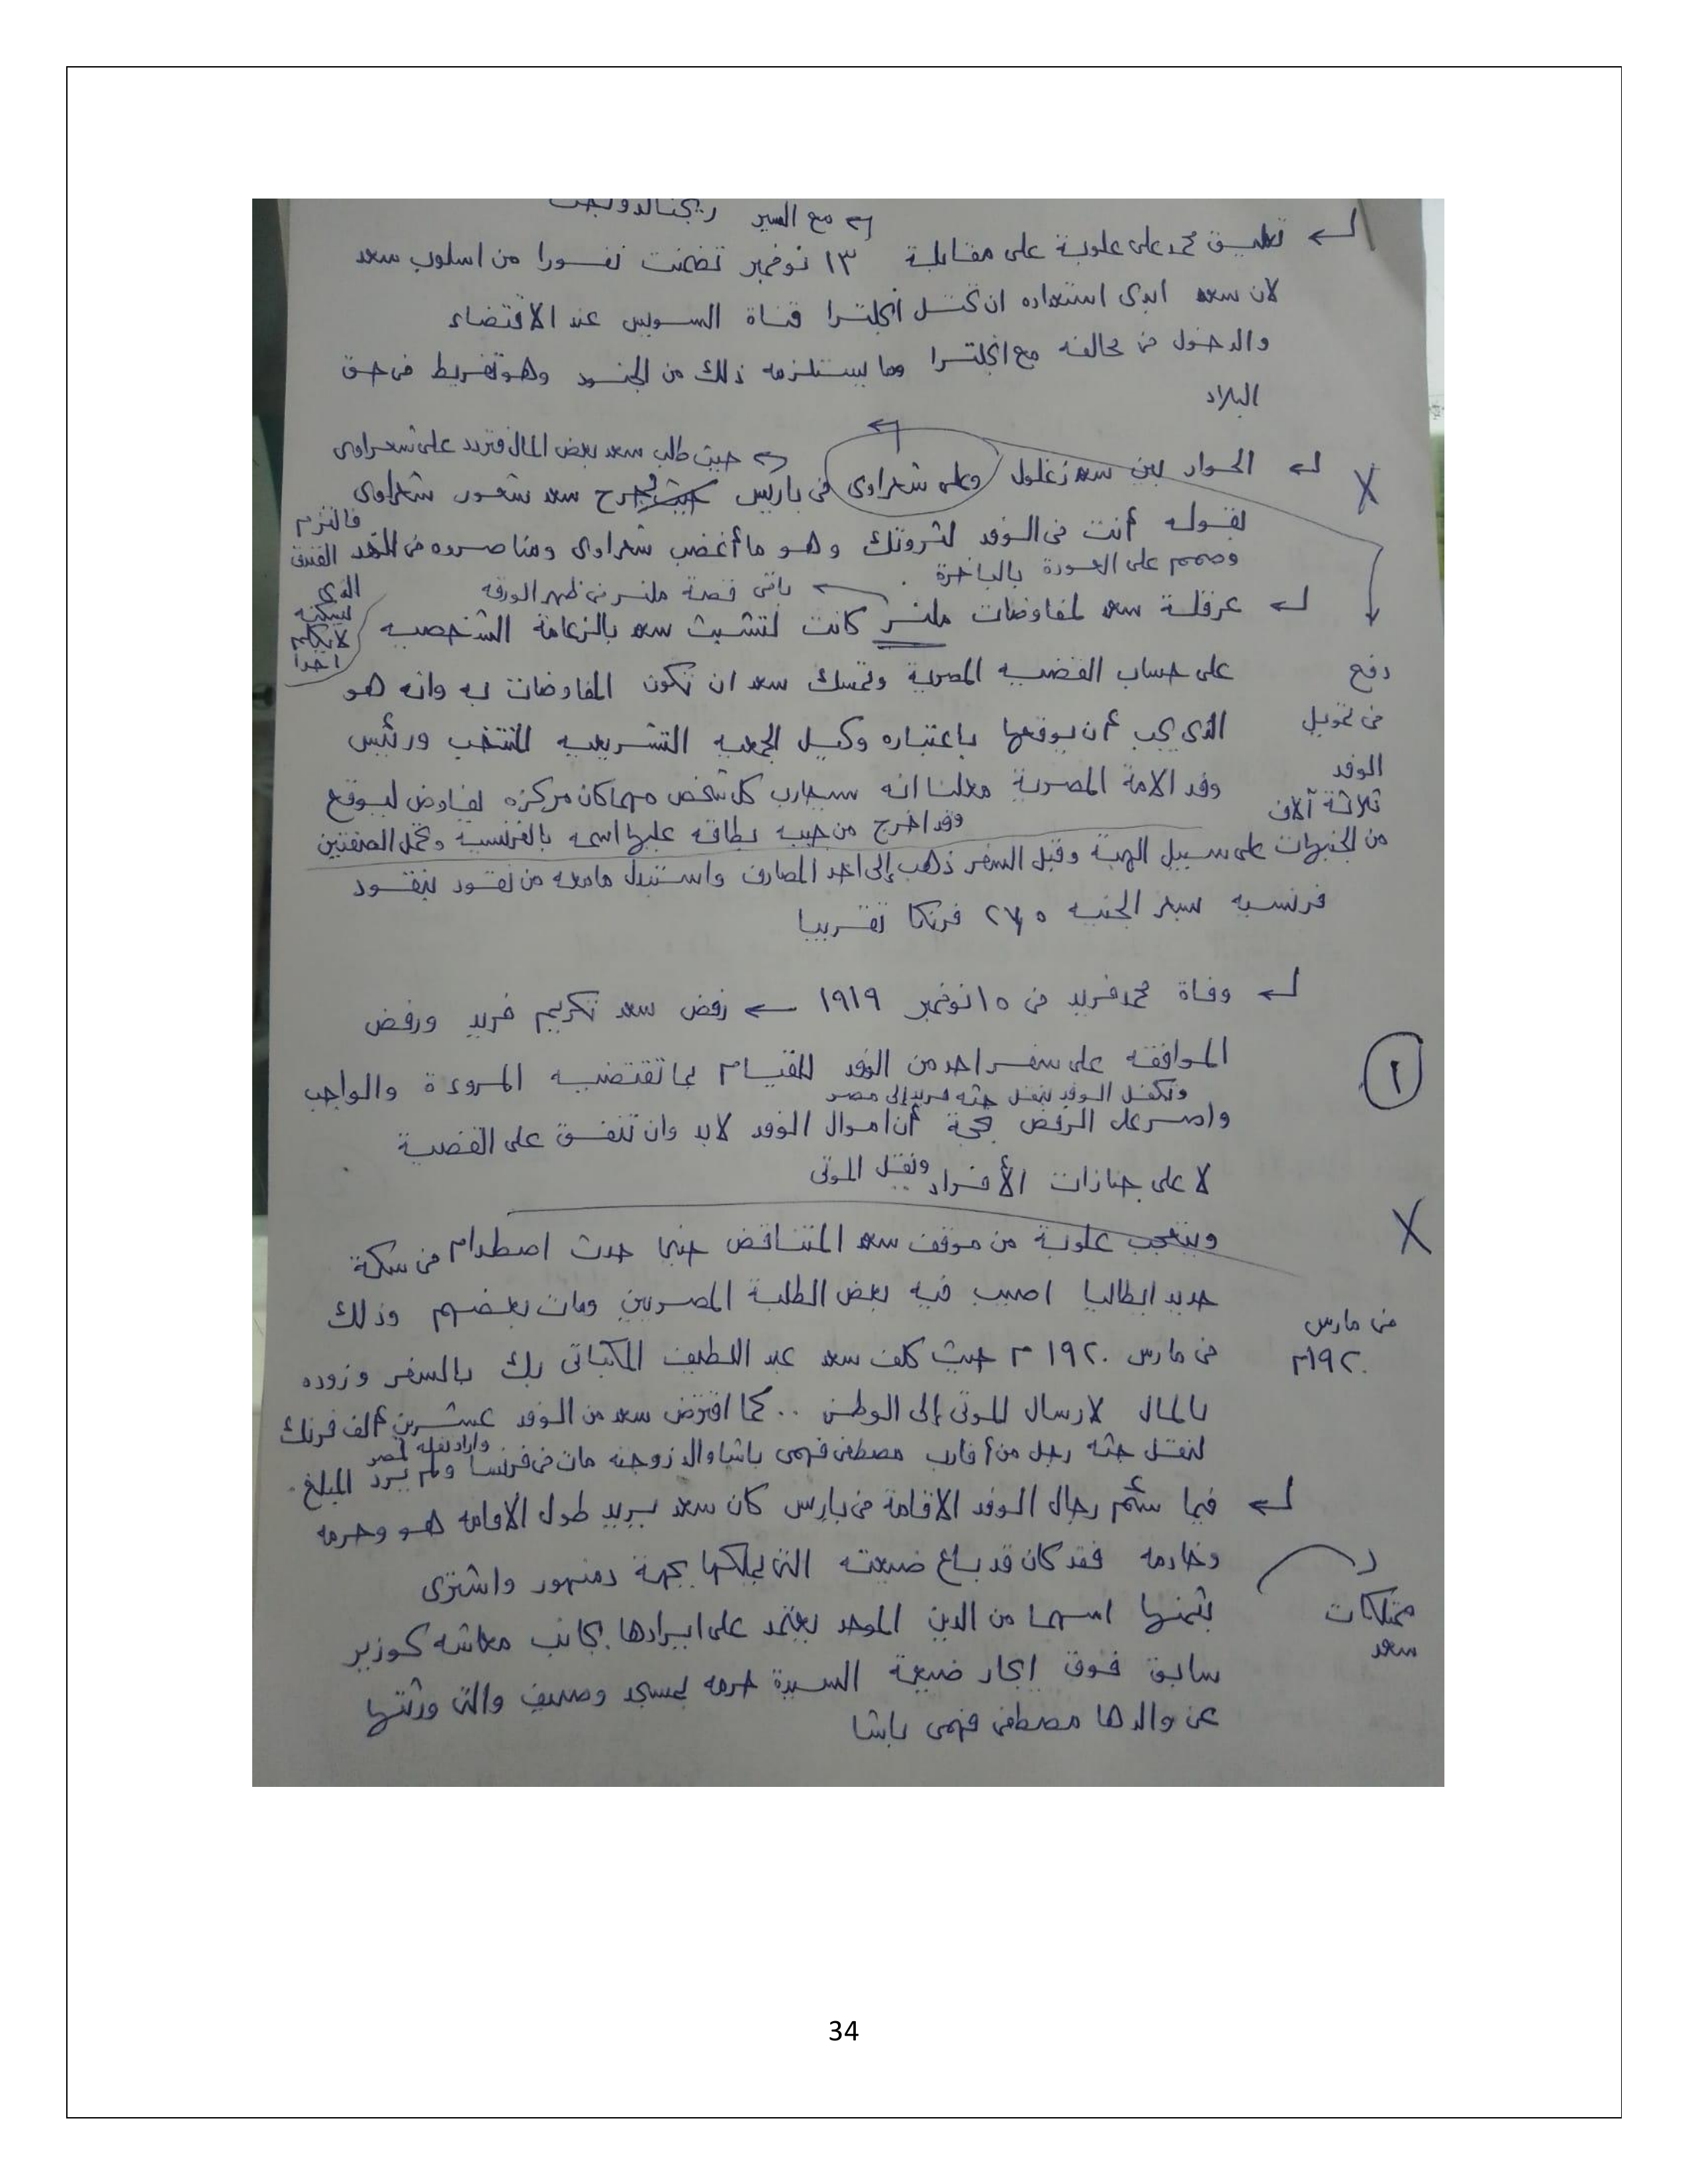 ← مع السير ريجنالد ونجت
← تعليق محمد على علوبة على مقابلة ١٣ نوفمبر تضمنت نفورا من اسلوب سعد
لان سعد ابدى استعداده ان تحتل انجلترا قناة السويس عند الاقتضاء
والدخول فى محالفه مع انجلترا وما يستلزمه ذلك من الجنود وهو تفريط فى حق
البلاد
X ← الحوار بين سعد زغلول وعلى شعراوى فى باريس ← حيث طلب سعد بعض المال فتردد على شعراوى
فجرح سعد شعور شعراوى
بقوله أنت فى الوفد لثروتك وهو ما أغضب شعراوى ومناصروه فى
فالتزم
الفندق
الذى
يسكنه
لا يكلم
احدا
وصمم على العودة بالباخرة.
← باقى قصة ملنر فى ظهر الورقه
← عرقلة سعد لمفاوضات ملنر كانت لتشبث سعد بالزعامة الشخصيه
على حساب القضيه المصرية وتمسك سعد ان تكون المفاوضات به وانه هو
الذى يجب أن يوقعها باعتباره وكيل الجمعيه التشريعيه المنتخب ورئيس
وفد الامة المصرية معلنا انه سيحارب كل شخص مهما كان مركزه يفاوض ليوقع
وقد اخرج من جيبه بطاقه عليها اسمه بالفرنسية وتحمل الصفتين
دفع
فى تمويل
الوفد
ثلاثة آلاف
من الجنيهات على سبيل الهبة وقبل السفر ذهب إلى احد المصارف واستبدل ما معه من نقود بنقود
فرنسيه سعر الجنيه ٢٧٥ فرنكا تقريبا
← وفاة محمد فريد فى ١٥ نوفمبر ١٩١٩ ← رفض سعد تكريم فريد ورفض
١
الموافقه على سفر احد من الوفد للقيام بما تقتضيه المروءة والواجب
وتكفل الوفد بنقل جثه فريد إلى مصر
واصر على الرفض بحجة أن اموال الوفد لابد وان تنفق على القضية
لا على جنازات الأفراد ونقل الموتى
X
ويتعجب علوبة من موقف سعد المتناقض حينما حدث اصطدام فى سكة
حديد ايطاليا اصيب فيه بعض الطلبة المصريين ومات بعضهم وذلك
فى مارس ١٩٢٠ م حيث كلف سعد عبد اللطيف المكباتى بك بالسفر وزوده
فى مارس
١٩٢٠م
بالمال لارسال الموتى إلى الوطن .. كما اقترض سعد من الوفد عشرين ألف فرنك
لنقل جثه رجل من أقارب مصطفى فهمى باشا والد زوجته مات فى فرنسا واراد نقله لمصر ولم يرد المبلغ.
← فيما سئم رجال الوفد الاقامة فى باريس كان سعد يريد طول الاقامه هو وحرمه
وخادمه فقد كان قد باع ضيعته التى يملكها بجهة دمنهور واشترى
ممتلكات
سعد
بثمنها اسهما من الدين الموحد يعتمد على ايرادها بجانب معاشه كوزير
سابق فوق ايجار ضيعة السيدة حرمه بمسجد وصيف والتى ورثتها
عن والدها مصطفى فهمى باشا
34